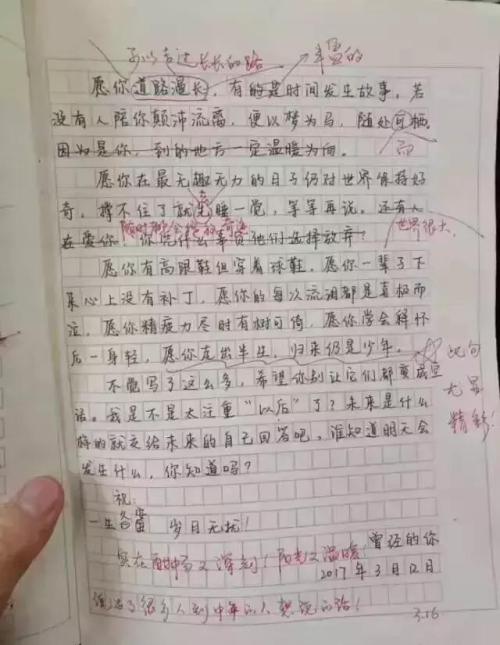 可以走过长长的路 丰富的
愿你道路漫长,有的是时间发生故事。若
没有人陪你颠沛流离,便以梦为马,随处可栖。
因为是你,到的地方一定温暖为向。
而
愿你在最无趣无力的日子仍对世界保持好
奇。撑不住了就先睡一觉,等等再说。还有人
随时都会 奇迹 世界很大
在爱你,你凭什么事责他们选择放弃?
愿你有高跟鞋但穿着球鞋,愿你一辈子下
来心上没有补丁,愿你的每次流泪都是喜极而
泣,愿你精疲力尽时有树可倚,愿你学会释怀
后一身轻,愿你走出半生,归来仍是少年。
此句
尤显
精彩
不觉写了这么多,希望你别让它们都变成空
话。我是不是太注重“以后”了?未来是什么
样的就交给未来的自己回答吧,谁知道明天会
发生什么,你知道吗?
祝:
一生皆富 岁月无扰!
实在 又深刻!阳光又温暖 曾经的你
2017年3月12日
说出了很多人到中年的人想说的话! 3.16